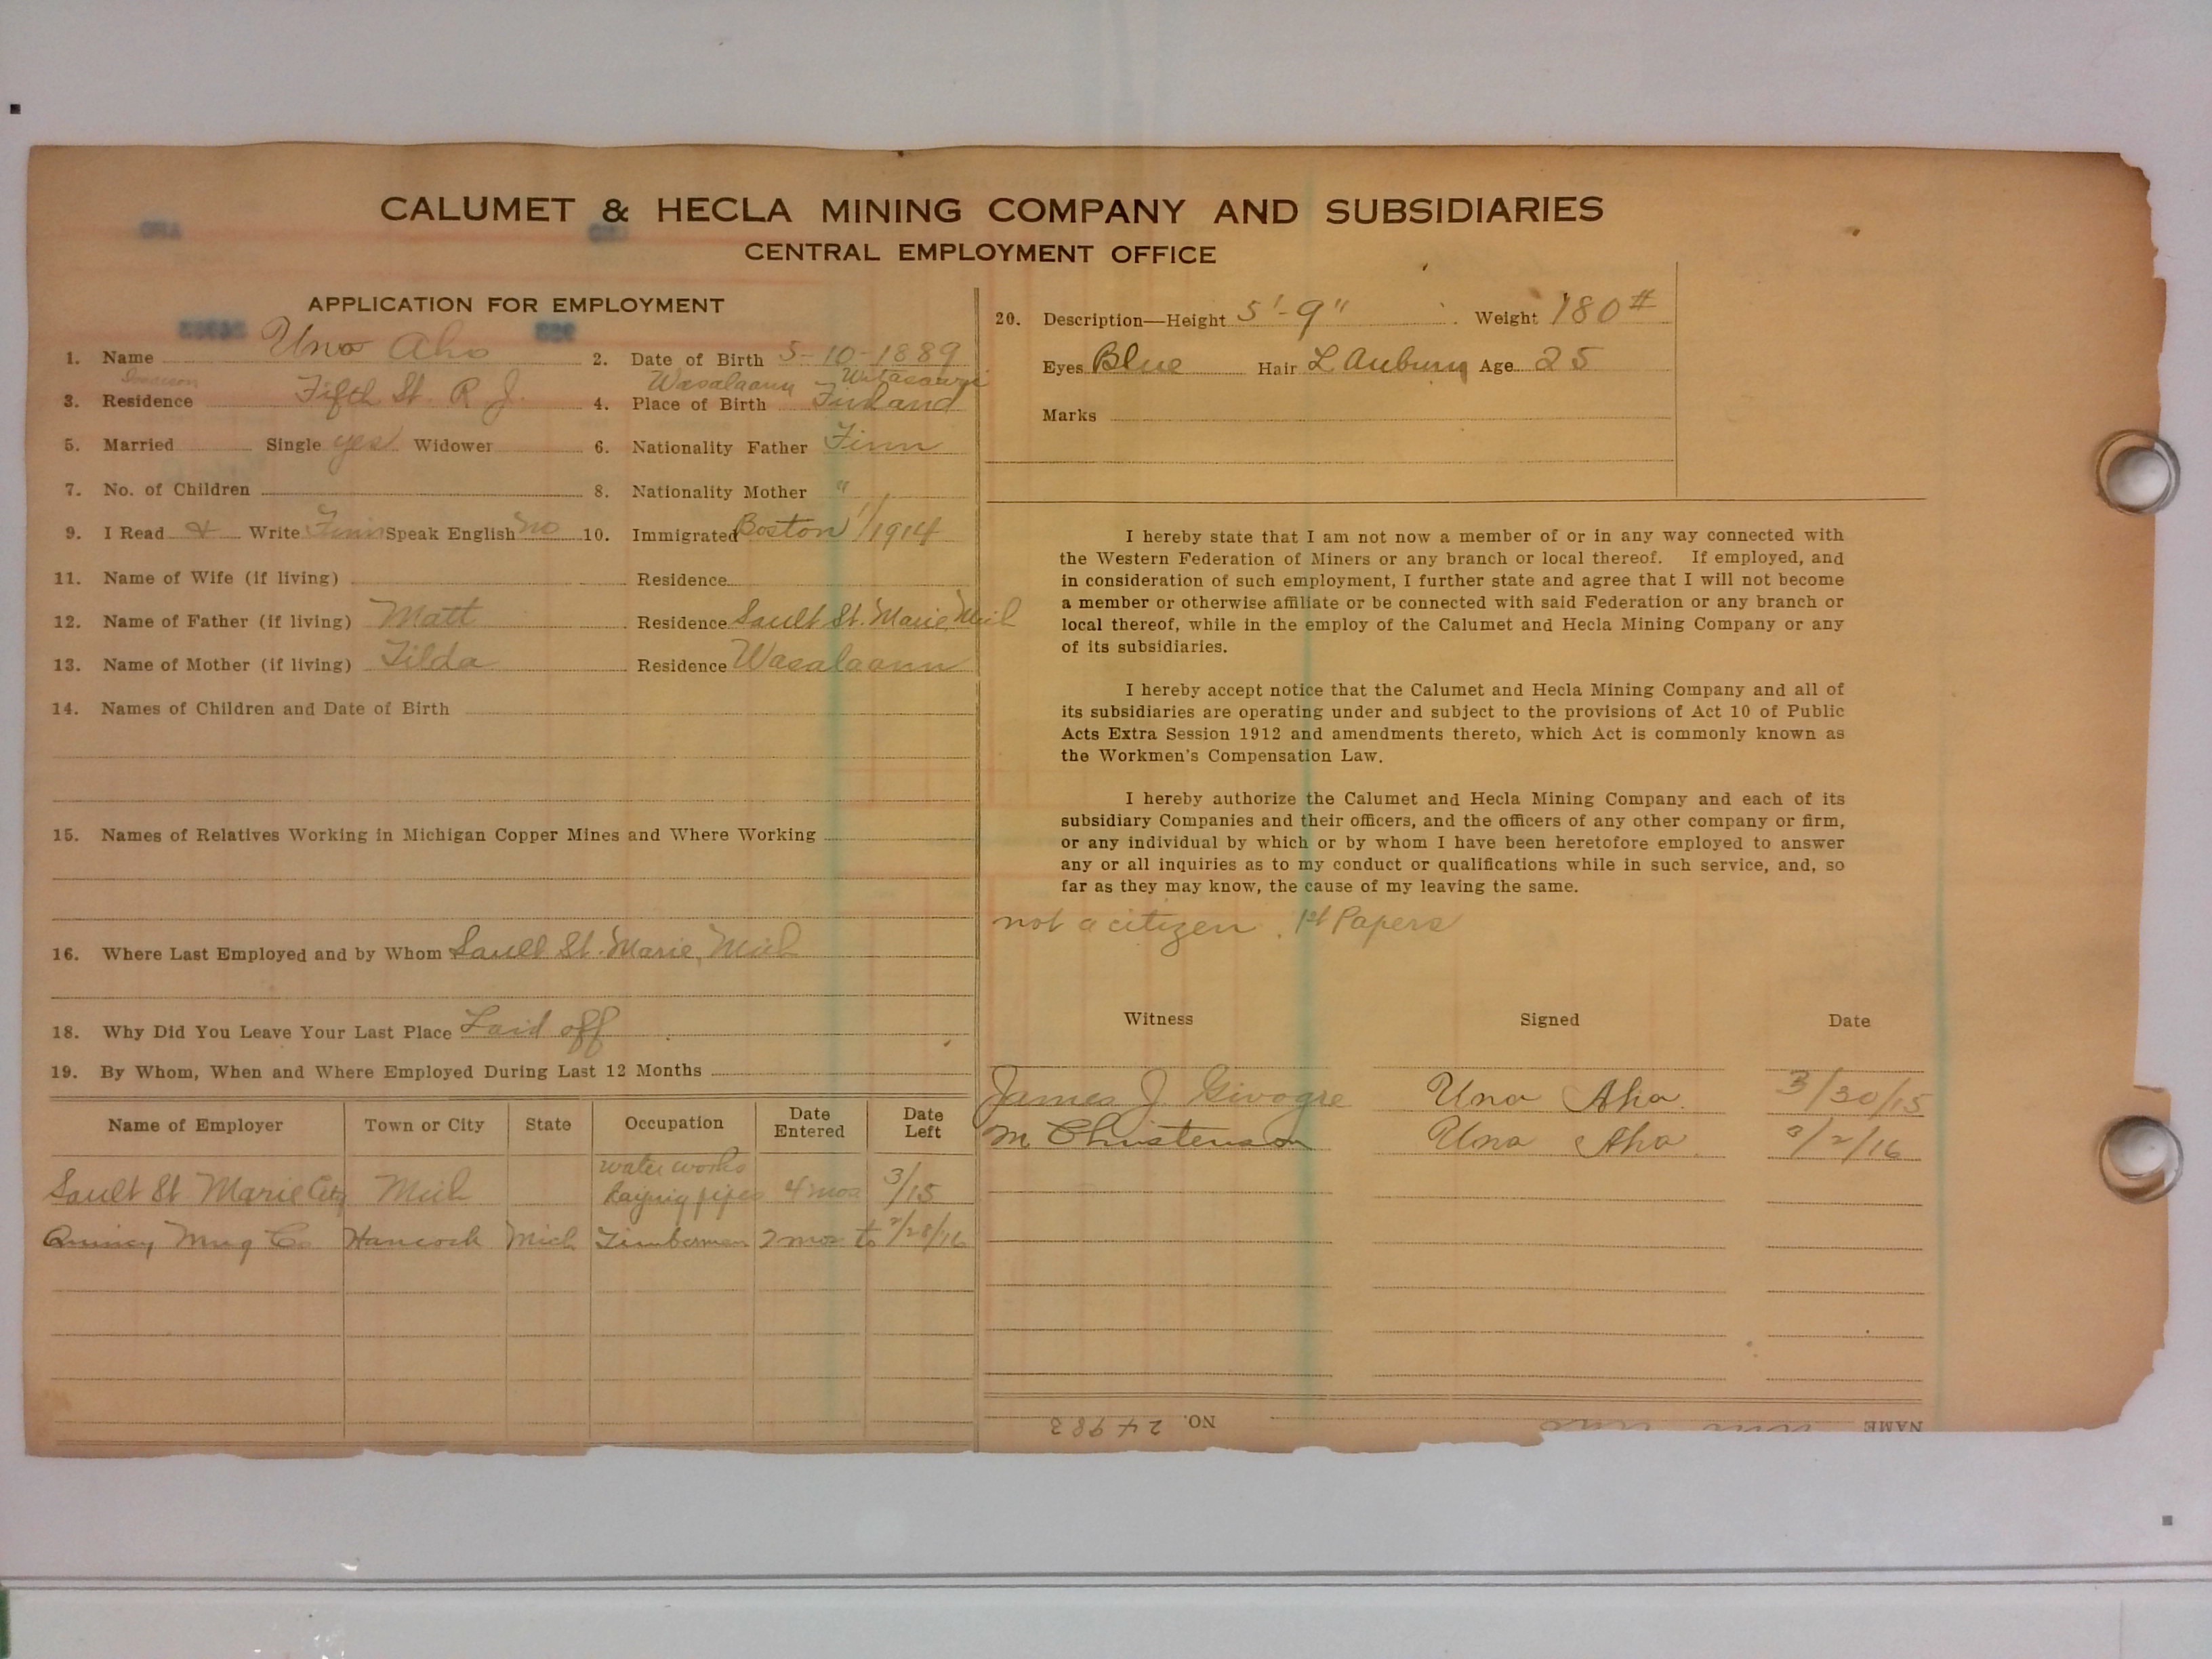 CALUMET & HECLA MINING COMPANY AND SUBSIDIARIES
CENTRAL EMPLOYMENT OFFICE
APPLICATION FOR EMPLOYMENT
1. Name Uno Aho 2. Date of Birth 5-10-1889
Wasalaann
3. Residence Fifth St. R J. 4. Place of Birth Finland
5. Married Single yes Widower 6. Nationality Father Finn
7. No. of Children 8. Nationality Mother "
9. I Read & Write Finn Speak English no 10. Immigrated Boston 1/1914
11. Name of Wife (if living) Residence
12. Name of Father (if living) Matt Residence Sault St. Marie Mich
13. Name of Mother (if living) Tilda Residence Wasalaann
14. Names of Children and Date of Birth
15. Names of Relatives Working in Michigan Copper Mines and Where Working
16. Where Last Employed and by Whom Sault St. Marie, Mich
18. Why Did You Leave Your Last Place Laid off
19. By Whom, When and Where Employed During Last 12 Months
Name of Employer Town or City State Occupation Date Entered Date Left
water works
Sault St Marie City Mich laying pipes 4 mos 3/15
Quincy Mng Co Hancock Mich Timberman 2 mos to 2/28/16
20. Description—Height 5'-9" Weight 180#
Eyes Blue Hair L Auburn Age 25
Marks
I hereby state that I am not now a member of or in any way connected with
the Western Federation of Miners or any branch or local thereof. If employed, and
in consideration of such employment, I further state and agree that I will not become
a member or otherwise affiliate or be connected with said Federation or any branch or
local thereof, while in the employ of the Calumet and Hecla Mining Company or any
of its subsidiaries.
I hereby accept notice that the Calumet and Hecla Mining Company and all of
its subsidiaries are operating under and subject to the provisions of Act 10 of Public
Acts Extra Session 1912 and amendments thereto, which Act is commonly known as
the Workmen's Compensation Law.
I hereby authorize the Calumet and Hecla Mining Company and each of its
subsidiary Companies and their officers, and the officers of any other company or firm,
or any individual by which or by whom I have been heretofore employed to answer
any or all inquiries as to my conduct or qualifications while in such service, and, so
far as they may know, the cause of my leaving the same.
not a citizen. 1st Papers
Witness Signed Date
James J. Givogre Uno Aho. 3/30/15
M. Christenson Uno Aho. 3/2/16
NAME NO. 24983